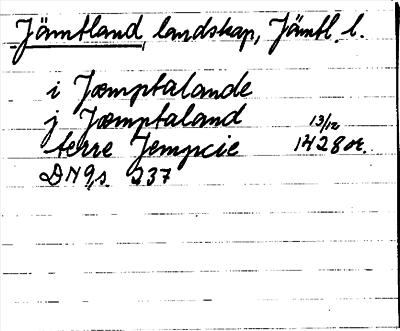 Jämtland, landskap, Jämtl. l.
i Jæmptalande
j Jæmptaland 13/12
terre Jempcie 1428 or.
DN 9, s. 237